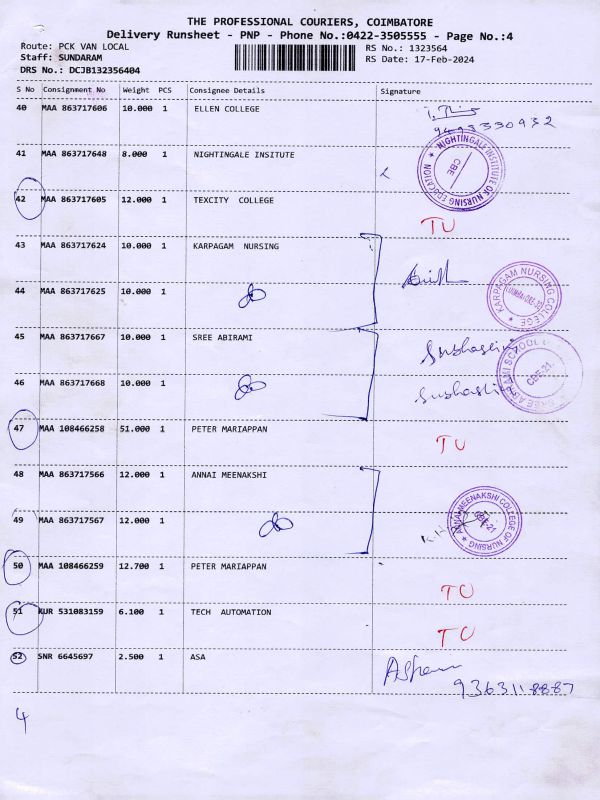 THE PROFESSIONAL COURIERS, COIMBATORE
Delivery Runsheet - PNP - Phone No.:0422-3505555 - Page No.:4
Route: PCK VAN LOCAL RS No.: 1323564
Staff: SUNDARAM RS Date: 17-Feb-2024
DRS No.: DCJB132356404
S No Consignment No Weight PCS Consignee Details Signature
40 MAA 863717606 10.000 1 ELLEN COLLEGE
41 MAA 863717648 8.000 1 NIGHTINGALE INSITUTE
NIGHTINGALE INSTITUTE OF NURSING EDUCATION
CBE
42 MAA 863717605 12.000 1 TEXCITY COLLEGE TU
43 MAA 863717624 10.000 1 KARPAGAM NURSING
KARPAGAM NURSING COLLEGE
44 MAA 863717625 10.000 1
45 MAA 863717667 10.000 1 SREE ABIRAMI
CBE-21
46 MAA 863717668 10.000 1
47 MAA 108466258 51.000 1 PETER MARIAPPAN TU
48 MAA 863717566 12.000 1 ANNAI MEENAKSHI
ANNAI MEENAKSHI COLLEGE OF NURSING
CBE-21
49 MAA 863717567 12.000 1
50 MAA 108466259 12.700 1 PETER MARIAPPAN TU
51 KUR 531083159 6.100 1 TECH AUTOMATION TU
52 SNR 6645697 2.500 1 ASA
4